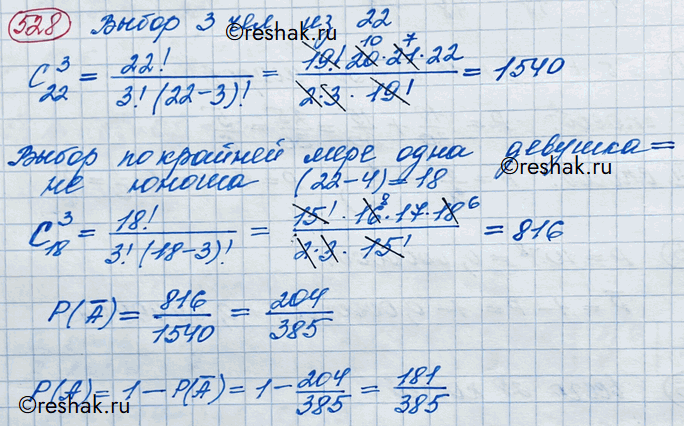 528 Выбор 3 чел из 22
©reshak.ru
C₂₂³ = 22! / 3! (22-3)! = 19! · 20 · 21 · 22 / 2·3 · 19! = 1540
10 7
©reshak.ru
Выбор по крайней мере одна девушка =
не юноша (22-4) = 18
©reshak.ru
C₁₈³ = 18! / 3! (18-3)! = 15! · 16 · 17 · 18 / 2·3 · 15! = 816
8 6
P(A̅) = 816/1540 = 204/385
P(A) = 1 - P(A̅) = 1 - 204/385 = 181/385
©reshak.ru
©reshak.ru